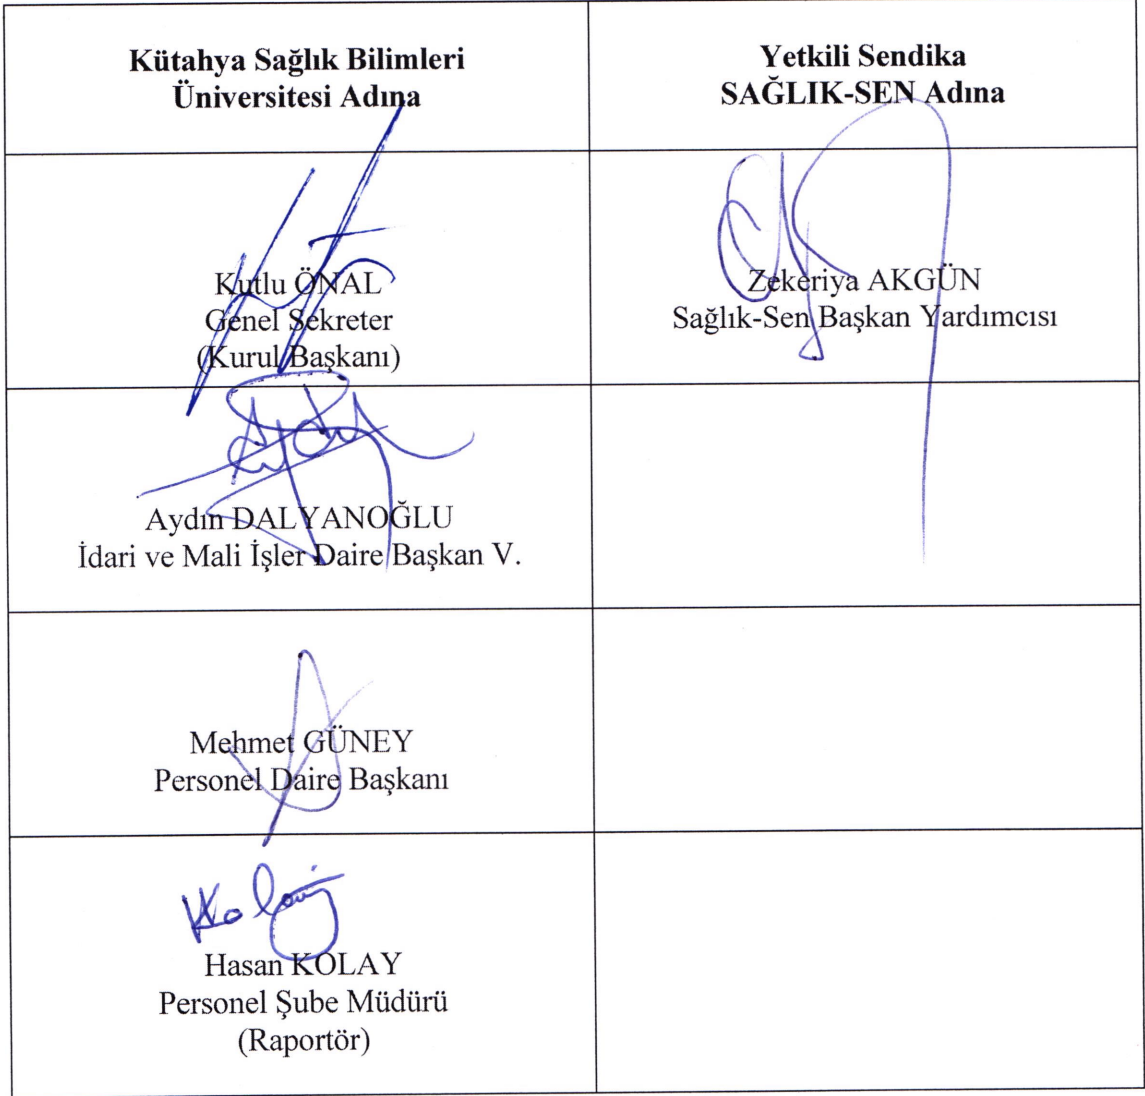 Kütahya Sağlık Bilimleri
Üniversitesi Adına
Yetkili Sendika
SAĞLIK-SEN Adına
Kutlu ÖNAL
Genel Sekreter
(Kurul Başkanı)
Zekeriya AKGÜN
Sağlık-Sen Başkan Yardımcısı
Aydın DALYANOĞLU
İdari ve Mali İşler Daire Başkan V.
Mehmet GÜNEY
Personel Daire Başkanı
Hasan KOLAY
Personel Şube Müdürü
(Raportör)